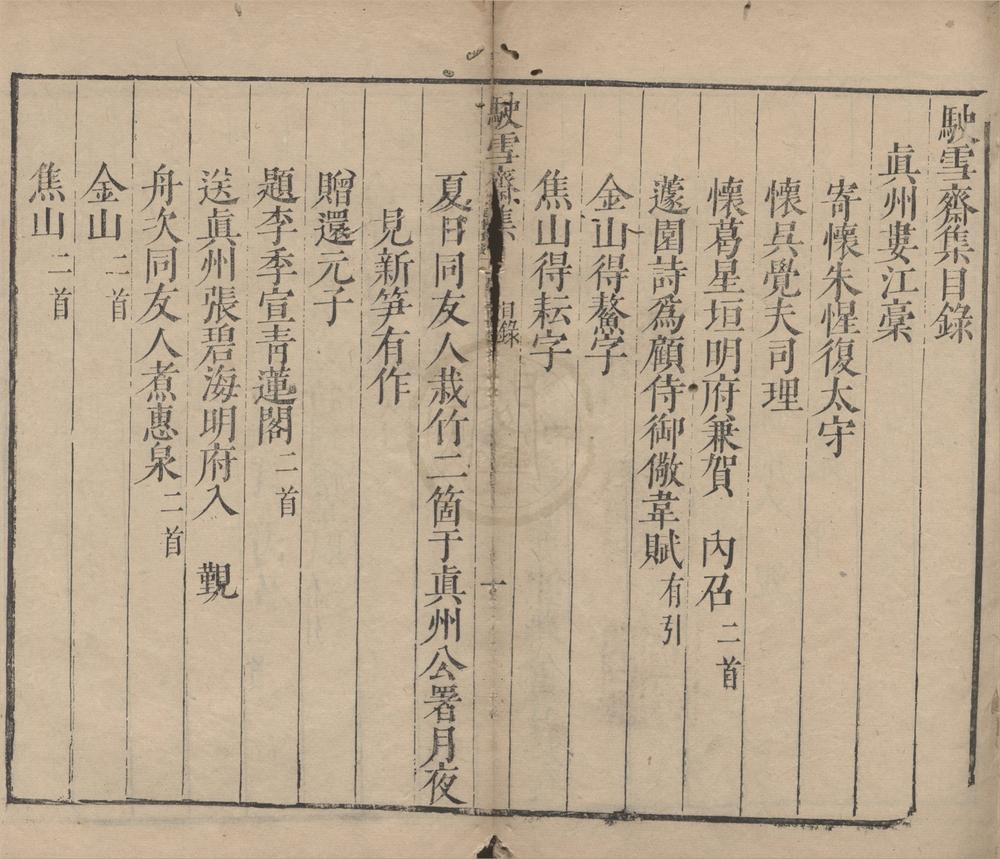 駛雪齋集目錄
眞州婁江稾
寄懷朱惺復太守
懷吳覺夫司理
懷葛星垣明府兼賀　內召二首
蘧園詩爲顧侍御儆韋賦有引
金山得鰲字
焦山得耘字
駛雪齋集　目錄　一
夏日同友人栽竹二箇于眞州公署月夜
見新笋有作
贈還元子
題李季宣靑蓮閣二首
送眞州張碧海明府入　覲
舟次同友人煮惠泉二首
金山二首
焦山二首